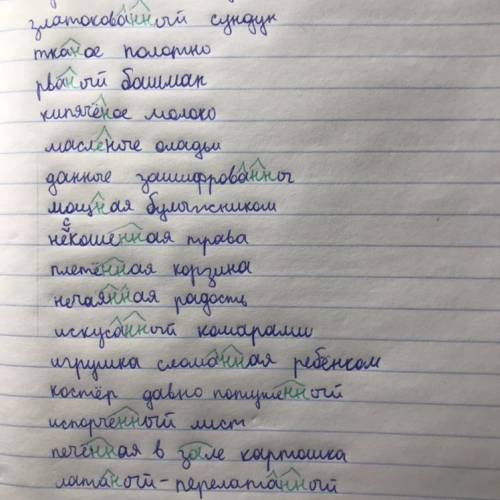 златокованный сундук
тканое полотно
рваный башмак
кипячёное молоко
масленые оладьи
данные зашифрованны
мощная булыжником
некошенная трава
плетённая корзина
нечаянная радость
искусанный комарами
игрушка сломанная ребёнком
костёр давно потушенный
испорченный лист
печённая в зале картошка
латаный-перелатанный